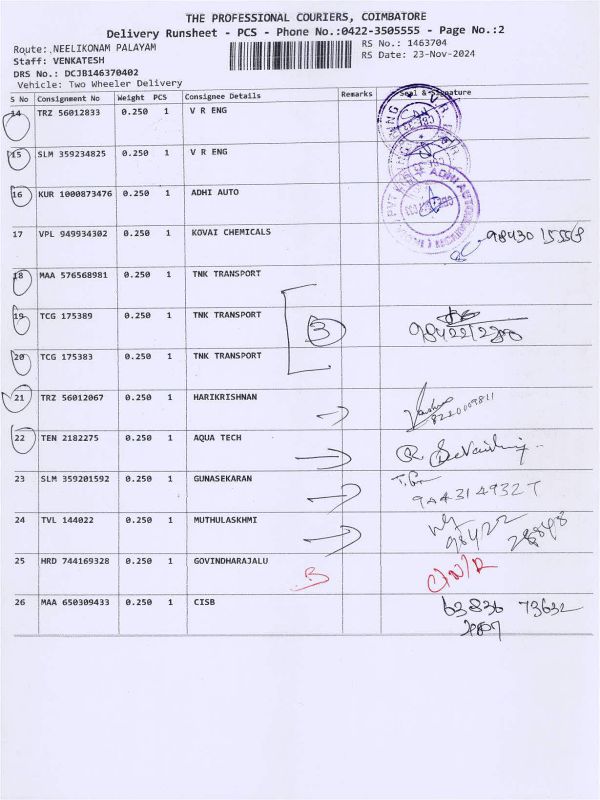 THE PROFESSIONAL COURIERS, COIMBATORE
Delivery Runsheet - PCS - Phone No.:0422-3505555 - Page No.:2
Route: NEELIKONAM PALAYAM
RS No.: 1463704
Staff: VENKATESH
RS Date: 23-Nov-2024
DRS No.: DCJB146370402
Vehicle: Two Wheeler Delivery
S No Consignment No Weight PCS Consignee Details Remarks Seal & Signature
14 TRZ 56012833 0.250 1 V R ENG
15 SLM 359234825 0.250 1 V R ENG
16 KUR 1000873476 0.250 1 ADHI AUTO
17 VPL 949934302 0.250 1 KOVAI CHEMICALS
18 MAA 576568981 0.250 1 TNK TRANSPORT
19 TCG 175389 0.250 1 TNK TRANSPORT 3
20 TCG 175383 0.250 1 TNK TRANSPORT
21 TRZ 56012067 0.250 1 HARIKRISHNAN
22 TEN 2182275 0.250 1 AQUA TECH
23 SLM 359201592 0.250 1 GUNASEKARAN
24 TVL 144022 0.250 1 MUTHULASHMI
25 HRD 744169328 0.250 1 GOVINDHARAJALU
26 MAA 650309433 0.250 1 CISB 63836 73632